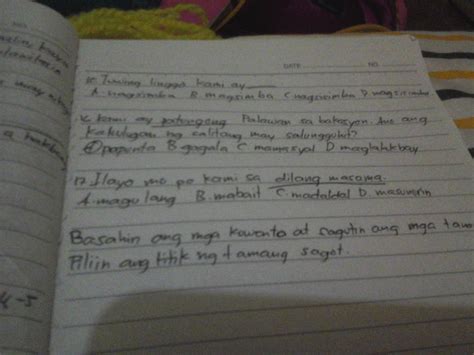 DATE NO.
15. Tuwing linggo kami ay
A. nagsimba B. magsimba C. nagsisimba D. magsisimba
16. kami ay patungong Palawan sa bakasyon. Ano ang
kahulugan ng salitang may salungguhit?
A papunta B. gagala C mamasyal D maglalakbay
17. Ilayo mo po kami sa dilang masama.
A. magulang B. mabait C. madaldal D. masunurin
Basahin ang mga kuwento at sagutin ang mga
Piliin ang titik ng tamang sagot.
4-5